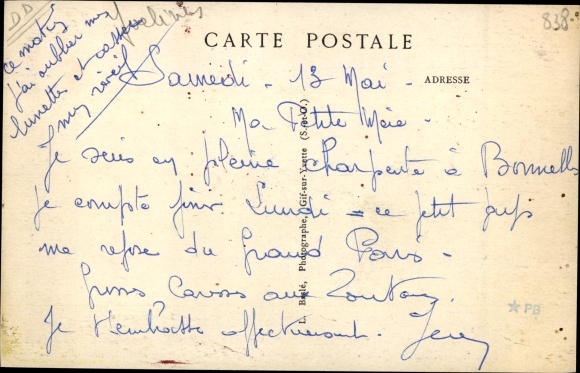 DD
pochines
838.
ce matin
j'ai oublier mes
lunettes et
mes
CARTE POSTALE
ADRESSE
Samedi - 13 Mai -
Ma Petite Mère -
Je suis en pleine charpente à Bonnelles
Je compte finir Lundi = ce petit
me repose du Grand Paris -
Grosses Caresses aux Toutous.
Je t'embrasse affectueusement.
L. Baglé, Photographe, Gif-sur-Yvette (S.-et-O.)
PB